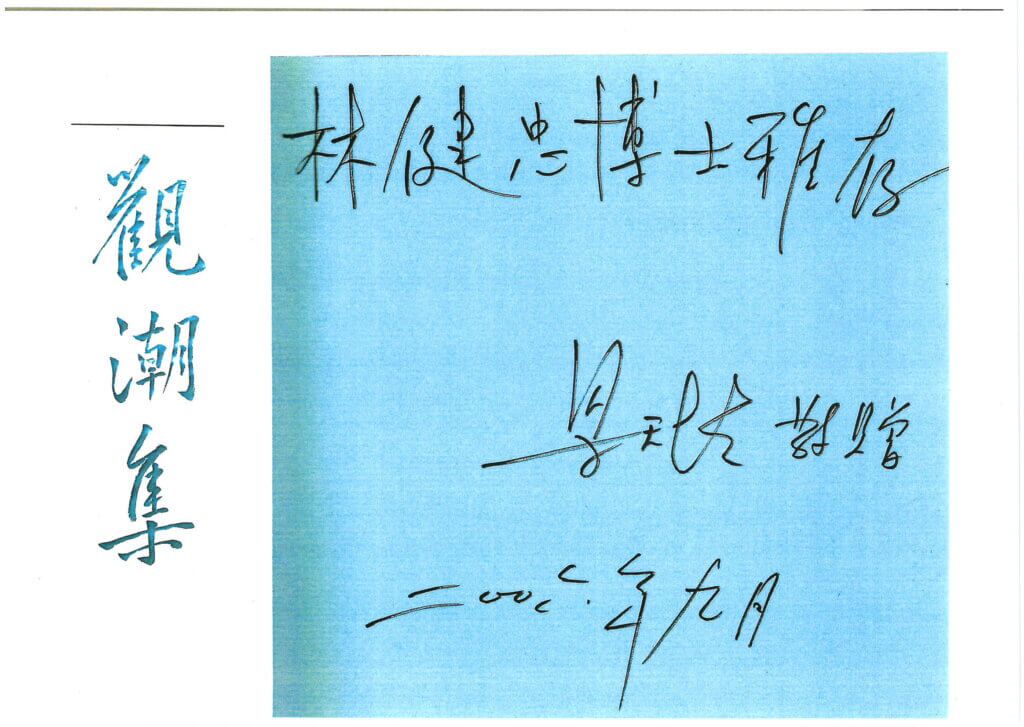 觀潮集
林健忠博士雅存
敬贈
二〇〇六年九月